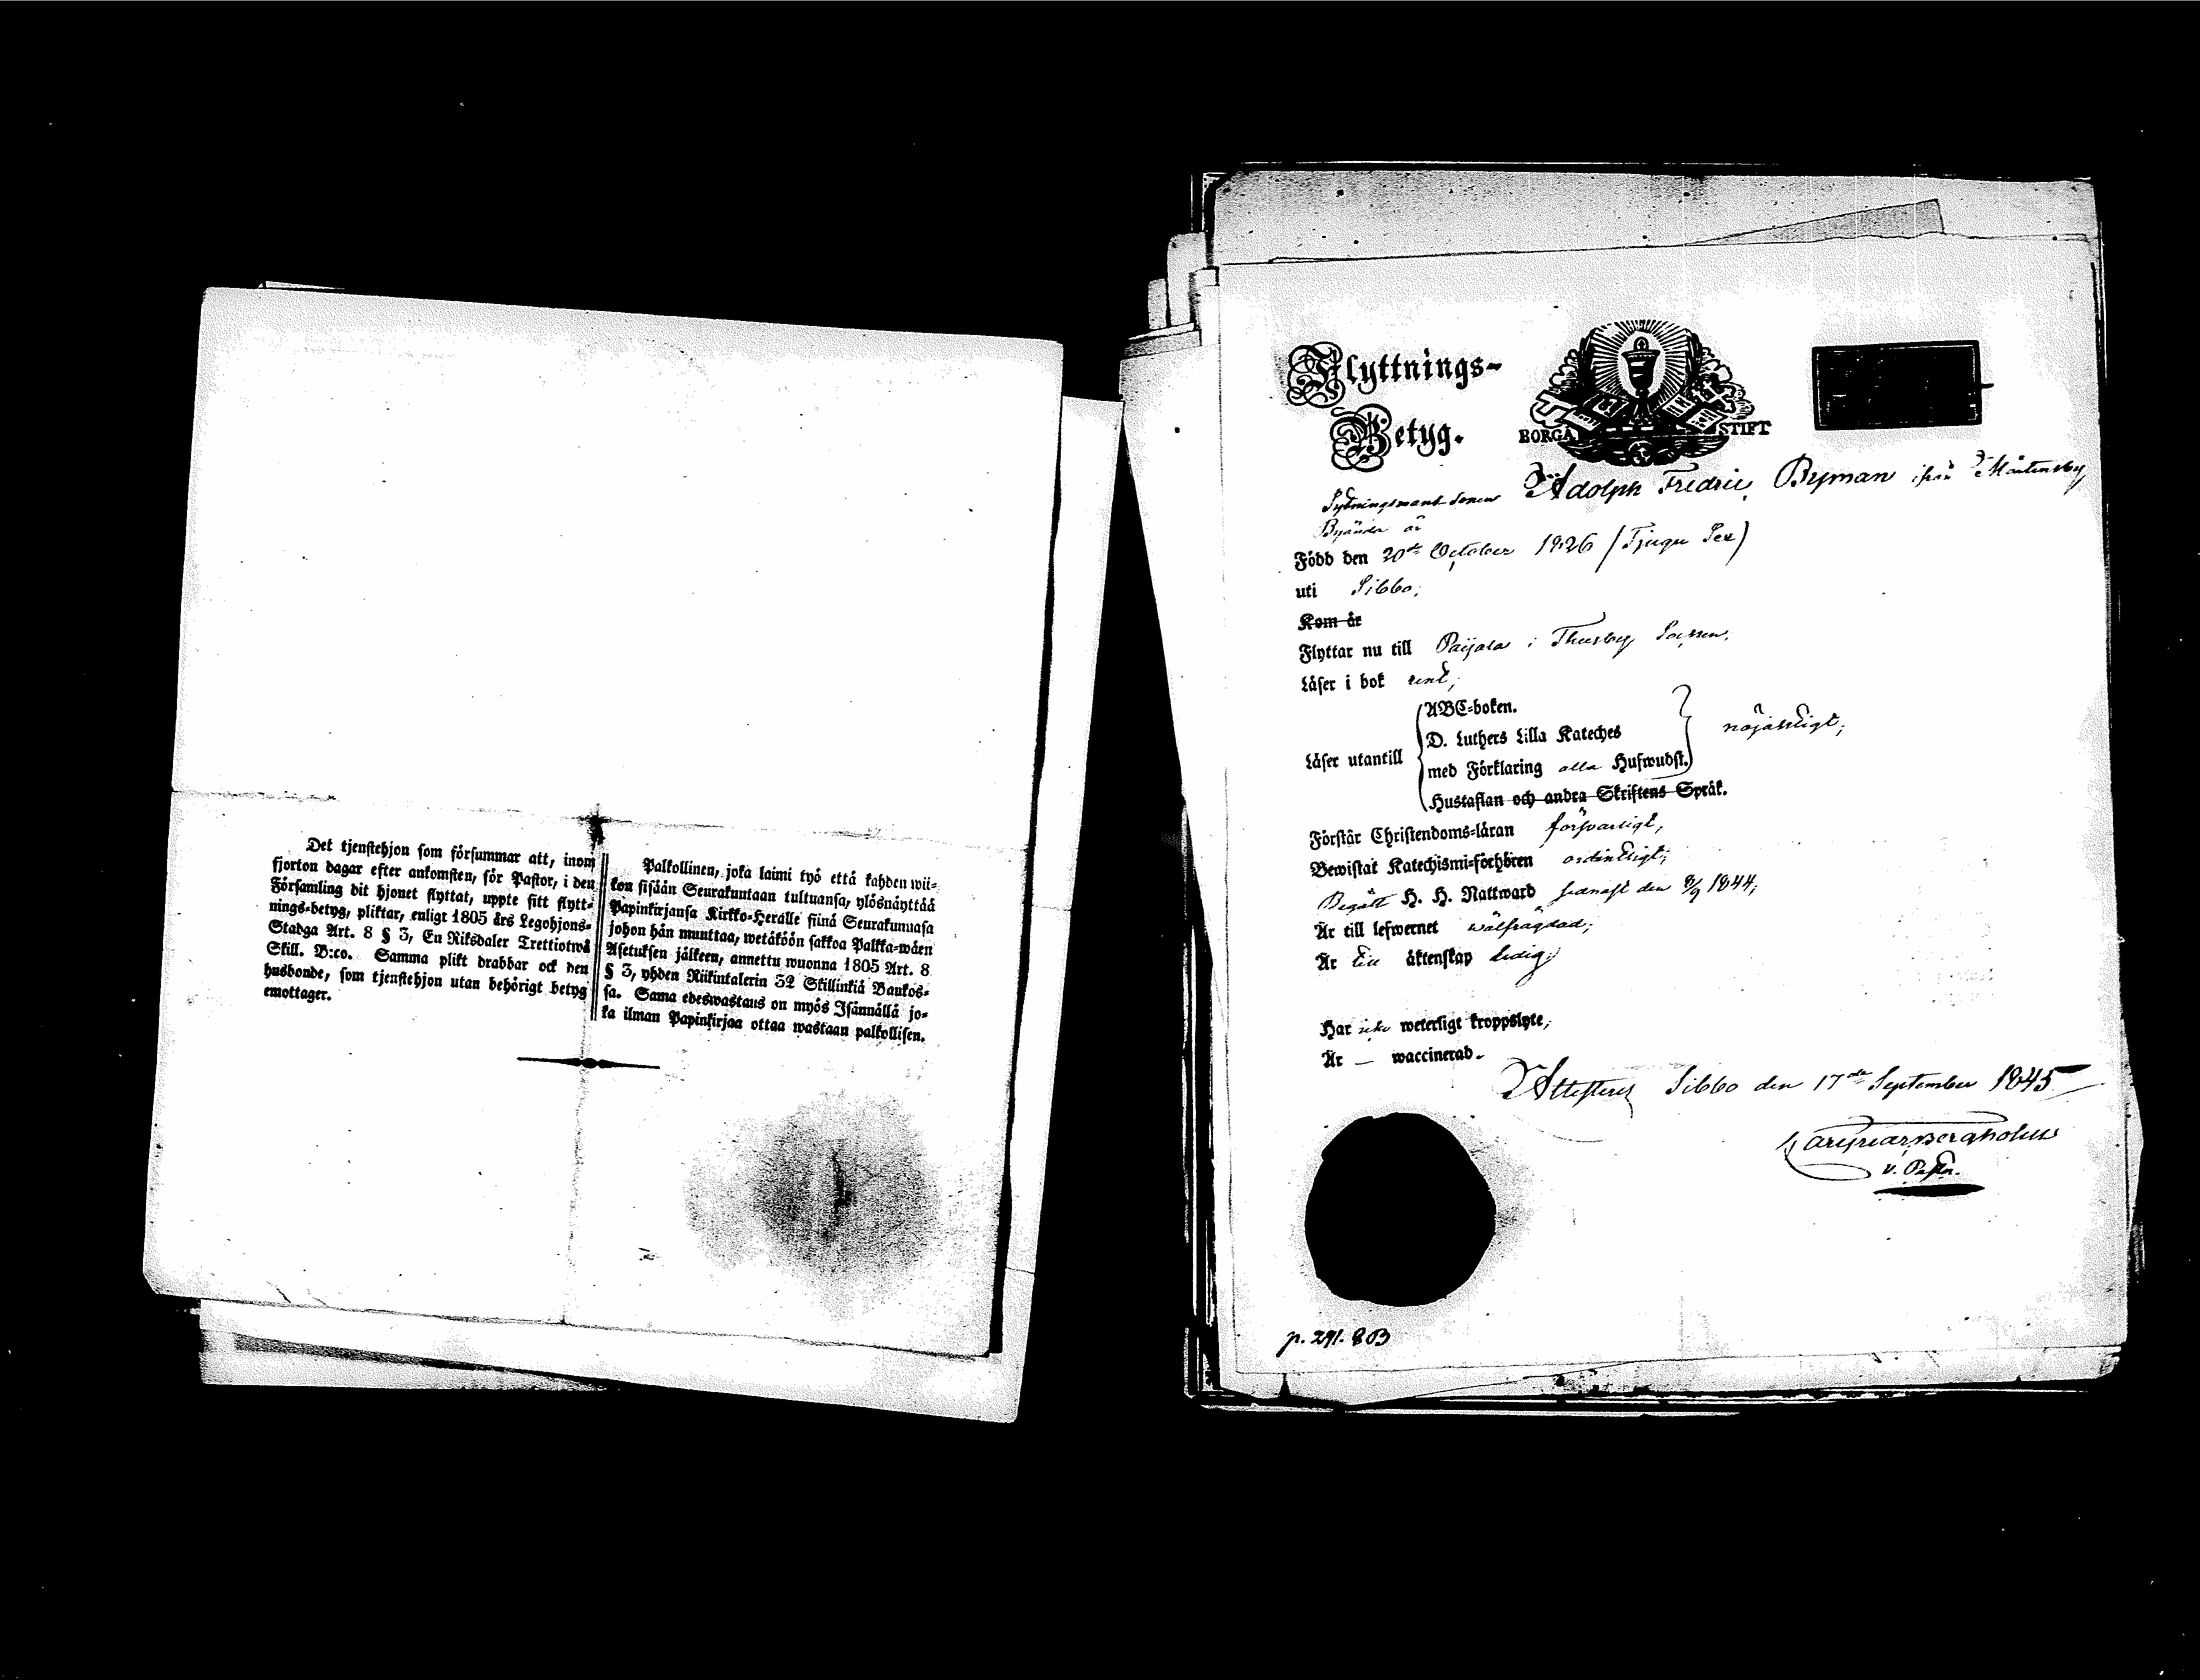 Det tjenstehjon som försummar att, inom
fjorton dagar efter ankomsten, för Pastor, i den
Församling dit hjonet flyttat, uppte sitt flytt-
nings-betyg, pliktar, enligt 1805 års Legohjons-
Stadga Art. 8 § 3, En Riksdaler Trettiotwå
Skill. B:co. Samma plikt drabbar ock den
husbonde, som tjenstehjon utan behörigt betyg
emottager.
Palkollinen, joka laimi työ että kahden wii-
kon sisään Seurakuntaan tultuansa, ylösnäyttää
Papinkirjansa Kirkko-Herralle siinä Seurakunnasa
johon hän muuttaa, wetäköön sakkoa Palkka-wäen
Asetuksen jälkeen, annettu wuonna 1805 Art. 8
§ 3, yhden Riikintalerin 32 Skillinkiä Bankos-
sa. Sama edeswastaus on myös Isännällä jo-
ka ilman Papinkirjaa ottaa wastaan palkollisen.
Flyttnings-
Betyg.
BORGÅ STIFT
Sytningsmans Sonen Adolph Fredric Byman ifrån Mårtensby
Byända är
Född den 20de October 1826 (Tjugu Sex)
uti Sibbo;
Kom år
Flyttar nu till Paijala i Thusby Socken.
Läser i bok rent;
Läser utantill
ABC-boken.
D. Luthers Lilla Kateches
med Förklaring alla Hufwudst.
nöjaktigt;
Hustaflan och andra Skriftens Språk.
Förstår Christendoms-läran försvarligt,
Bewistat Katechismi-förhören ordentligt;
Begått H. H. Nattward sednast den 8/9 1844;
Är till lefwernet wälfrägdad;
Är till äktenskap ledig;
Har icke weterligt kroppslyte;
Är — waccinerad.
Attesteras Sibbo den 17de September 1845
Bergholm
v. Pastor.
p. 291. 803